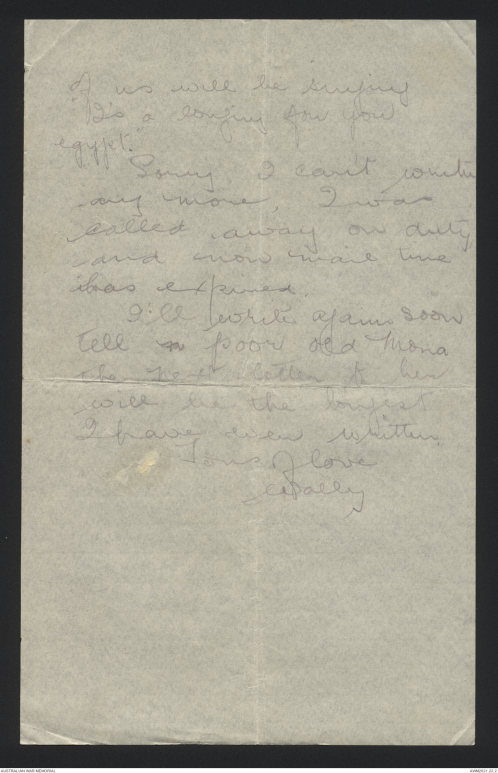 of us will be singing
"It's a longing for you
egypt."
Sorry, I can't write
any more, I was
called away on duty
and now mail time
has expired.
I'll write again soon
tell poor old Mona
the next letter to her
will be the longest
I have ever written.
Tons of love
Wally
AUSTRALIAN WAR MEMORIAL